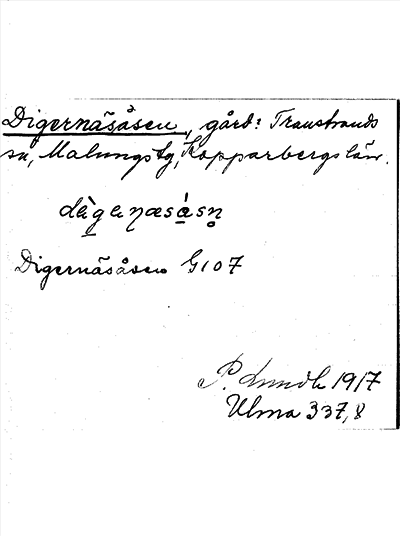 Digernäsåsen, gård: Transtrands
sn, Malungs tg, Kopparbergs län.
dàgenæsåsn̥
Digernäsåsen G107
P. Lundh 1917
Ulma 337,8